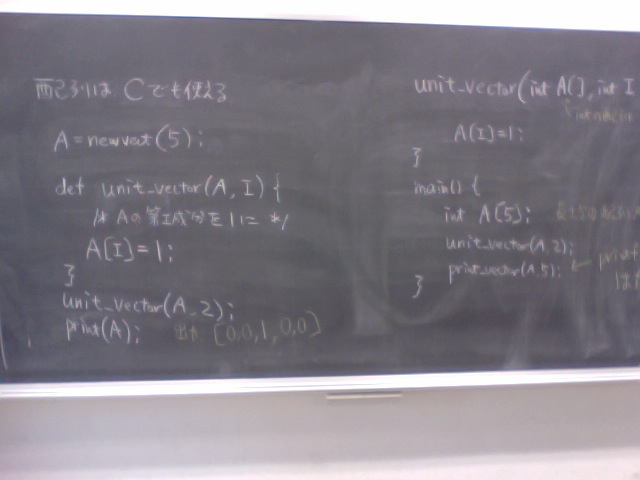 配列は Cでも使える
A=newvect(5);
def unit_vector(A, I) {
/* Aの第I成分を1に */
A[I]=1;
}
unit_vector(A, 2);
print(A); 出力 [0,0,1,0,0]
unit_vector(int A[], int I
A[I]=1;
}
main() {
int A[5];
unit_vector(A, 2);
print_vector(A, 5); ← print
}